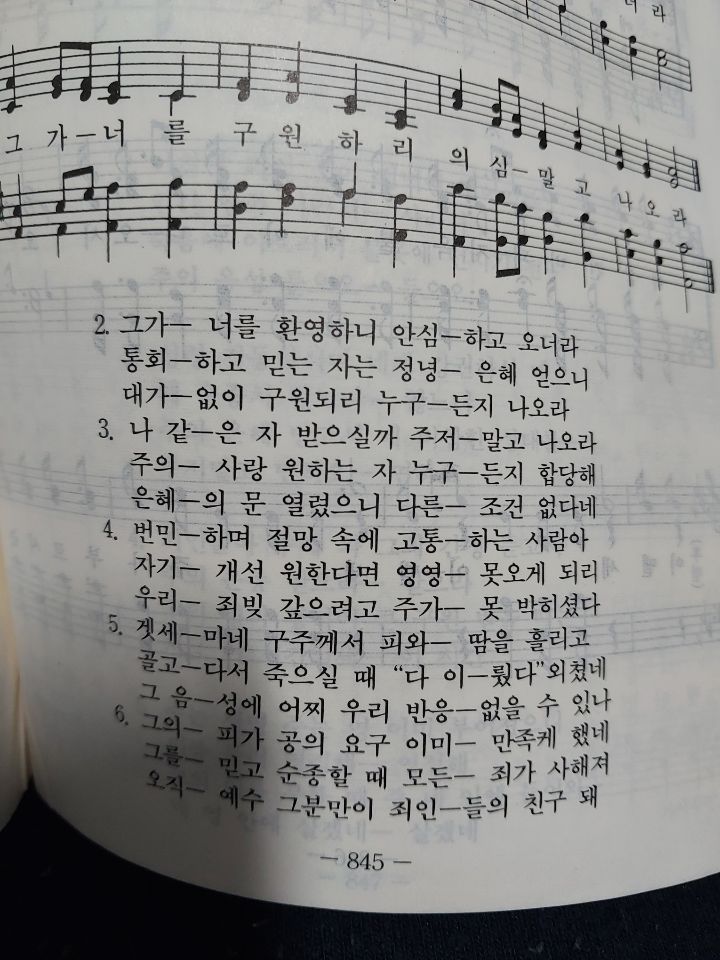 너 라
그 가―너 를 구 원 하 리 의 심―말 고 나 오 라
2. 그가― 너를 환영하니 안심―하고 오너라
통회―하고 믿는 자는 정녕― 은혜 얻으니
대가―없이 구원되리 누구―든지 나오라
3. 나 같―은 자 받으실까 주저―말고 나오라
주의― 사랑 원하는 자 누구―든지 합당해
은혜―의 문 열렸으니 다른― 조건 없다네
4. 번민―하며 절망 속에 고통―하는 사람아
자기― 개선 원한다면 영영― 못오게 되리
우리― 죄빚 갚으려고 주가― 못 박히셨다
5. 겟세―마네 구주께서 피와― 땀을 흘리고
골고―다서 죽으실 때 “다 이―뤘다”외쳤네
그 음―성에 어찌 우리 반응―없을 수 있나
6. 그의― 피가 공의 요구 이미― 만족케 했네
그를― 믿고 순종할 때 모든― 죄가 사해져
오직― 예수 그분만이 죄인―들의 친구 돼
― 845 ―